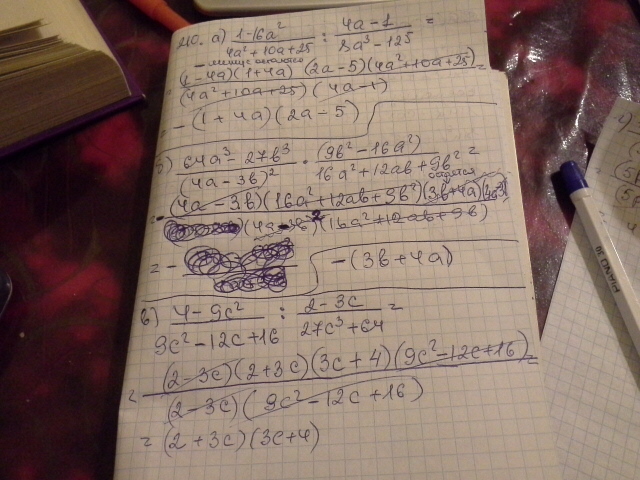 210. а) (1-16a²)/(4a²+10a+25) : (4a-1)/(8a³-125) =
минус остался
= (1-4a)(1+4a)(2a-5)(4a²+10a+25) =
(4a²+10a+25)(4a-1)
= -(1+4a)(2a-5)
б) (64a³-27b³)/(4a-3b)² · (9b²-16a²)/(16a²+12ab+9b²) =
остается
= (4a-3b)(16a²+12ab+9b²)(3b+4a)
(4a-3b)²(16a²+12ab+9b)
= - -(3b+4a)
в) (4-9c²)/(9c²-12c+16) : (2-3c)/(27c³+64) =
= (2-3c)(2+3c)(3c+4)(9c²-12c+16) =
(2-3c)(9c²-12c+16)
= (2+3c)(3c+4)